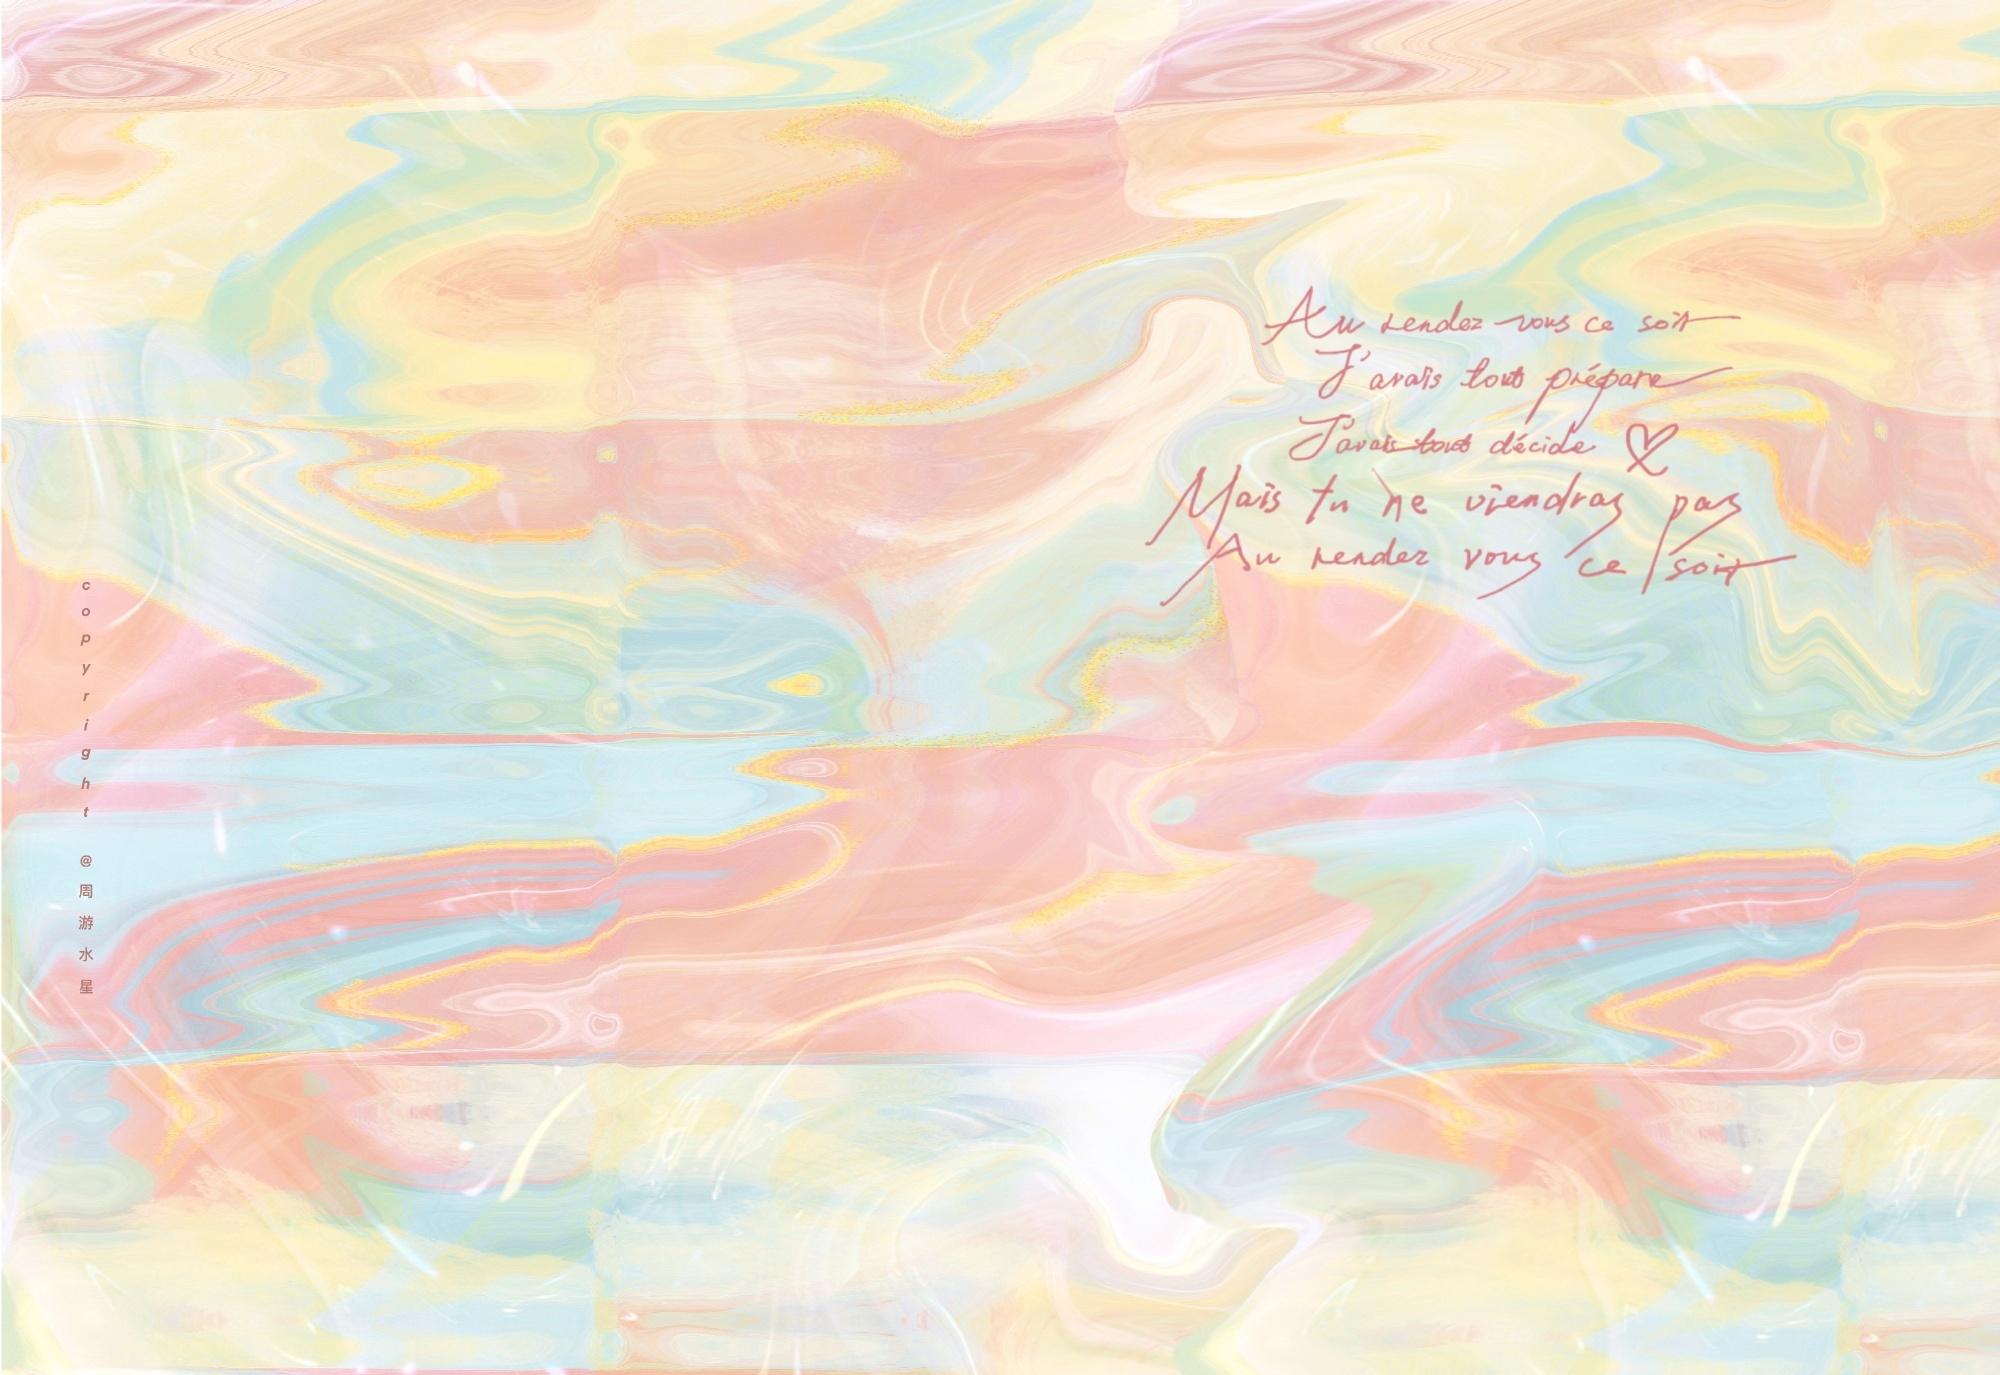 Au rendez vous ce soir
J'avais tout prépare
J'avais tout décide
Mais tu ne viendras pas
Au rendez vous ce soir
copyright @周游水星